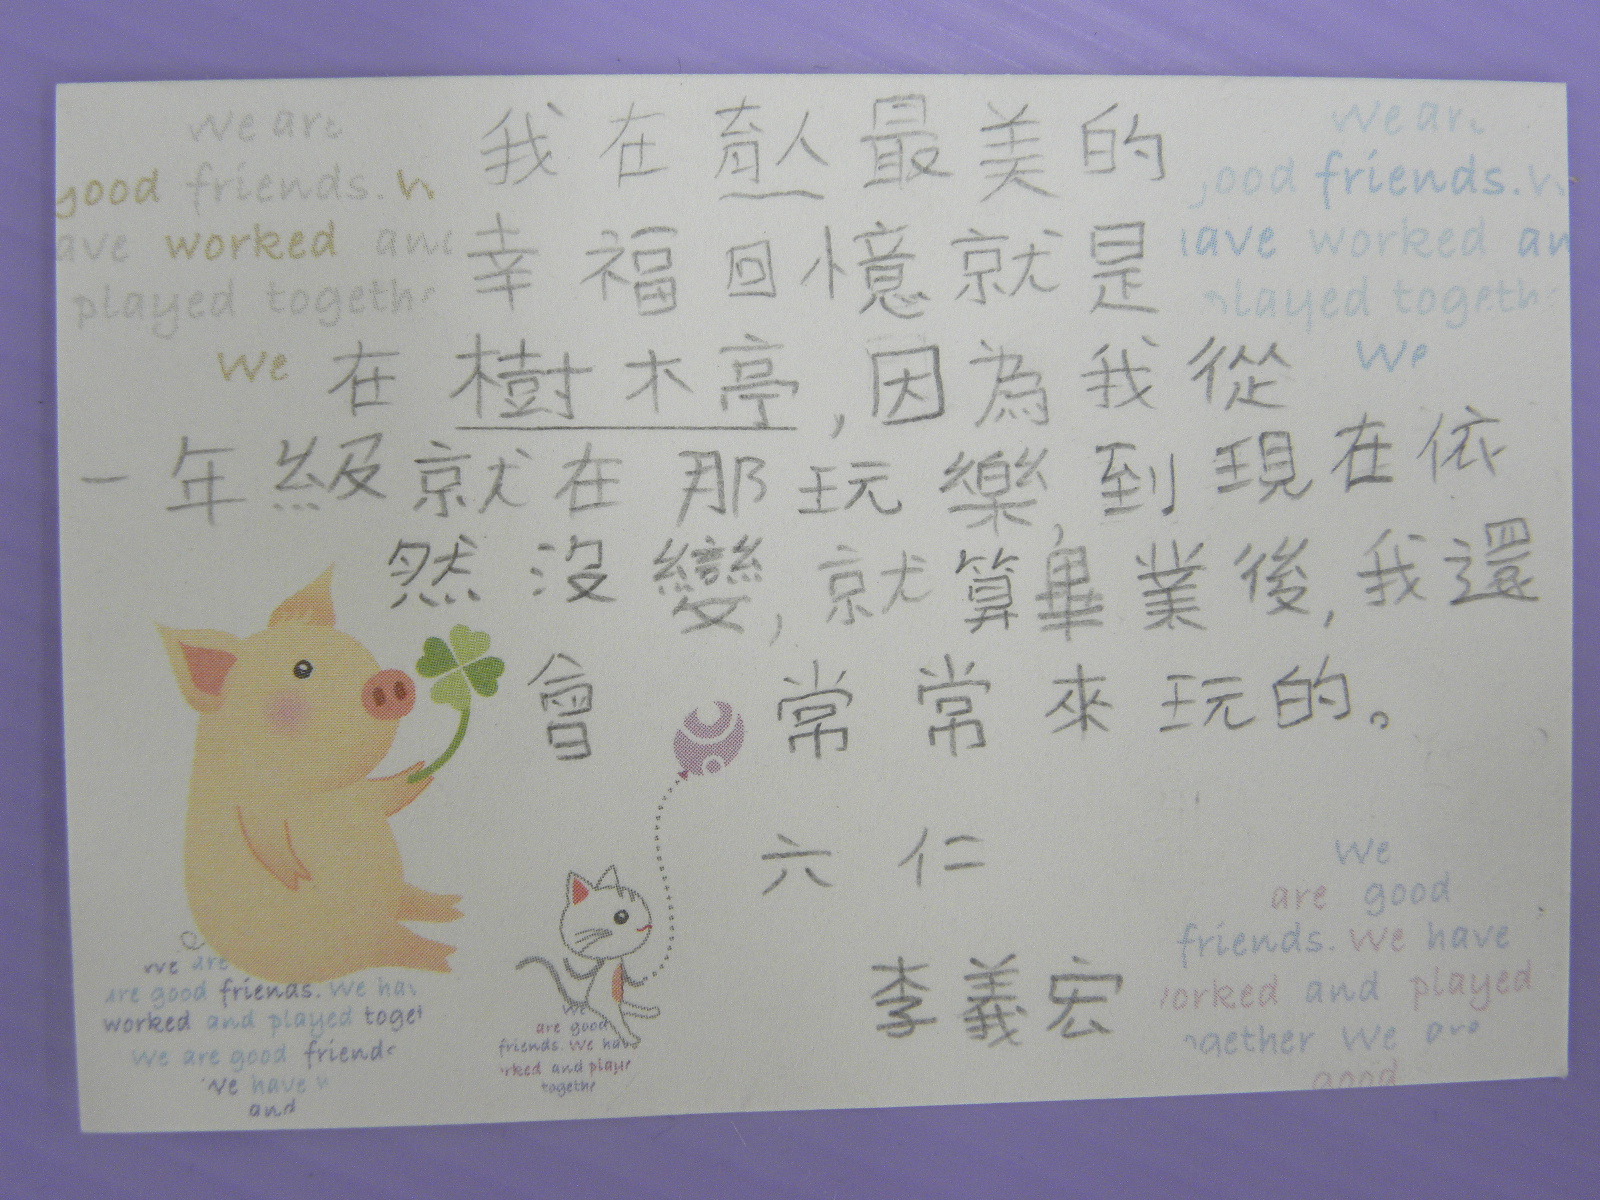 我在育人最美的
幸福回憶就是
在樹木亭,因為我從
一年級就在那玩樂,到現在依
然沒變,就算畢業後,我還
會常常來玩的。
六仁
李義宏
We are
good friends.
worked
played
We
We
friends.
worked
We
We
are good
friends. We have
and played
We
We are
are good friends. We
worked and played
We are good
We have
and
We
are good
friends. We
and